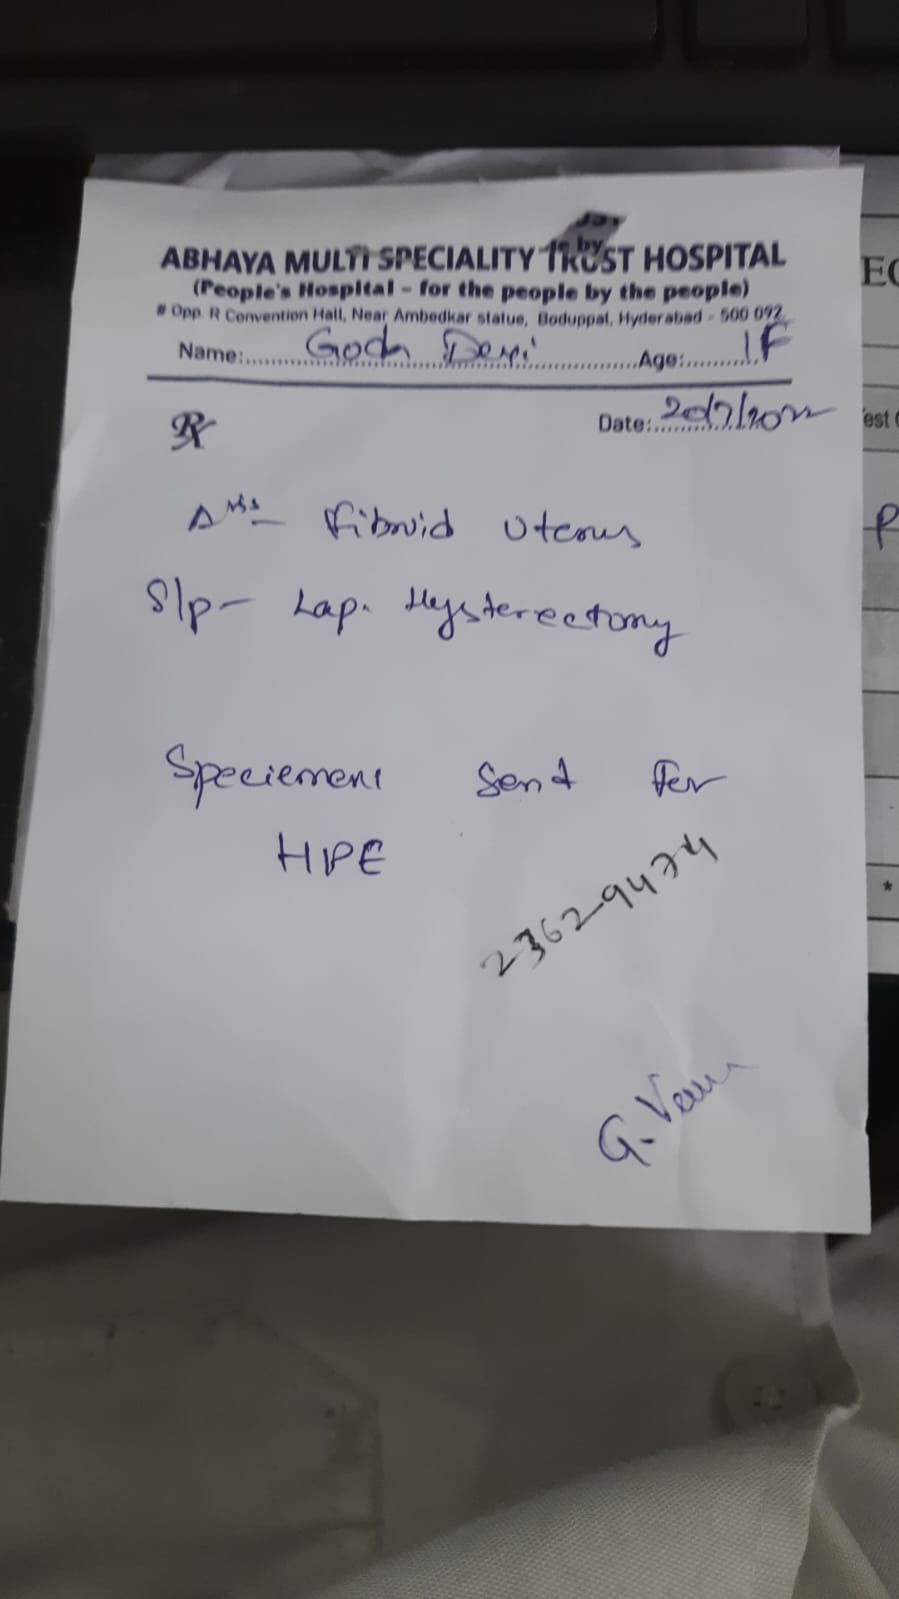 ABHAYA MULTI SPECIALITY TRUST HOSPITAL
(People's Hospital - for the people by the people)
# Opp. R Convention Hall, Near Ambedkar statue, Boduppal, Hyderabad - 500 092.
Name: Goda Devi Age: /F
Rx
Date: 20/7/2022
Fibroid Uterus
S/p- Lap. Hysterectomy
Speciemens Send for
HPE
23629474
G. Ve